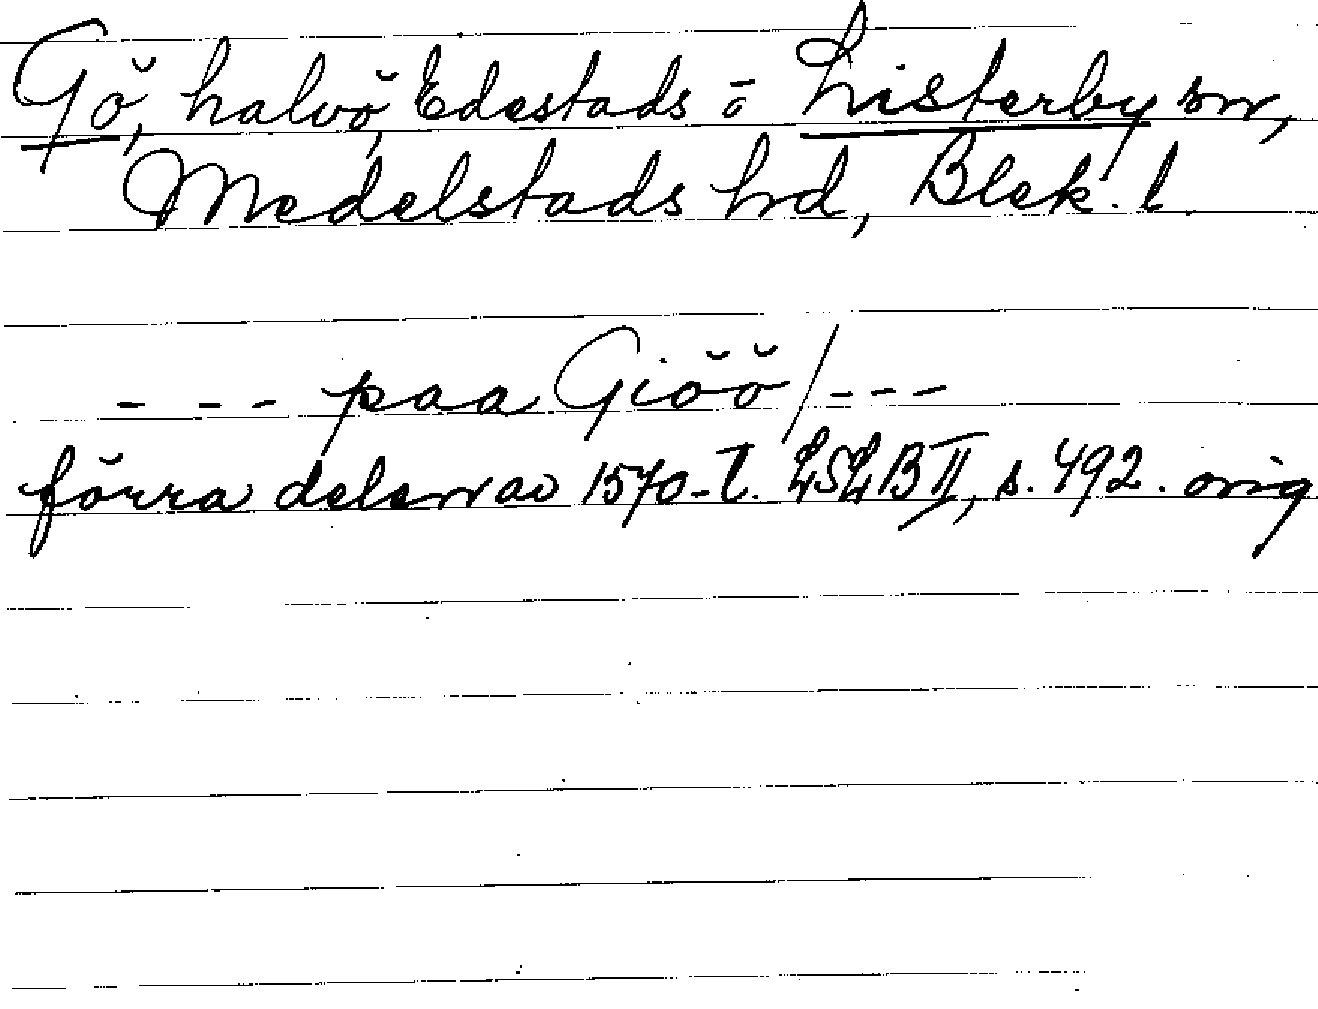 Gö, halvö, Edestads o Listerby snr,
Medelstads hd, Blek. l.
--- paa Giöö/---
förra delen av 1570-t. LSLB II, s. 492. orig